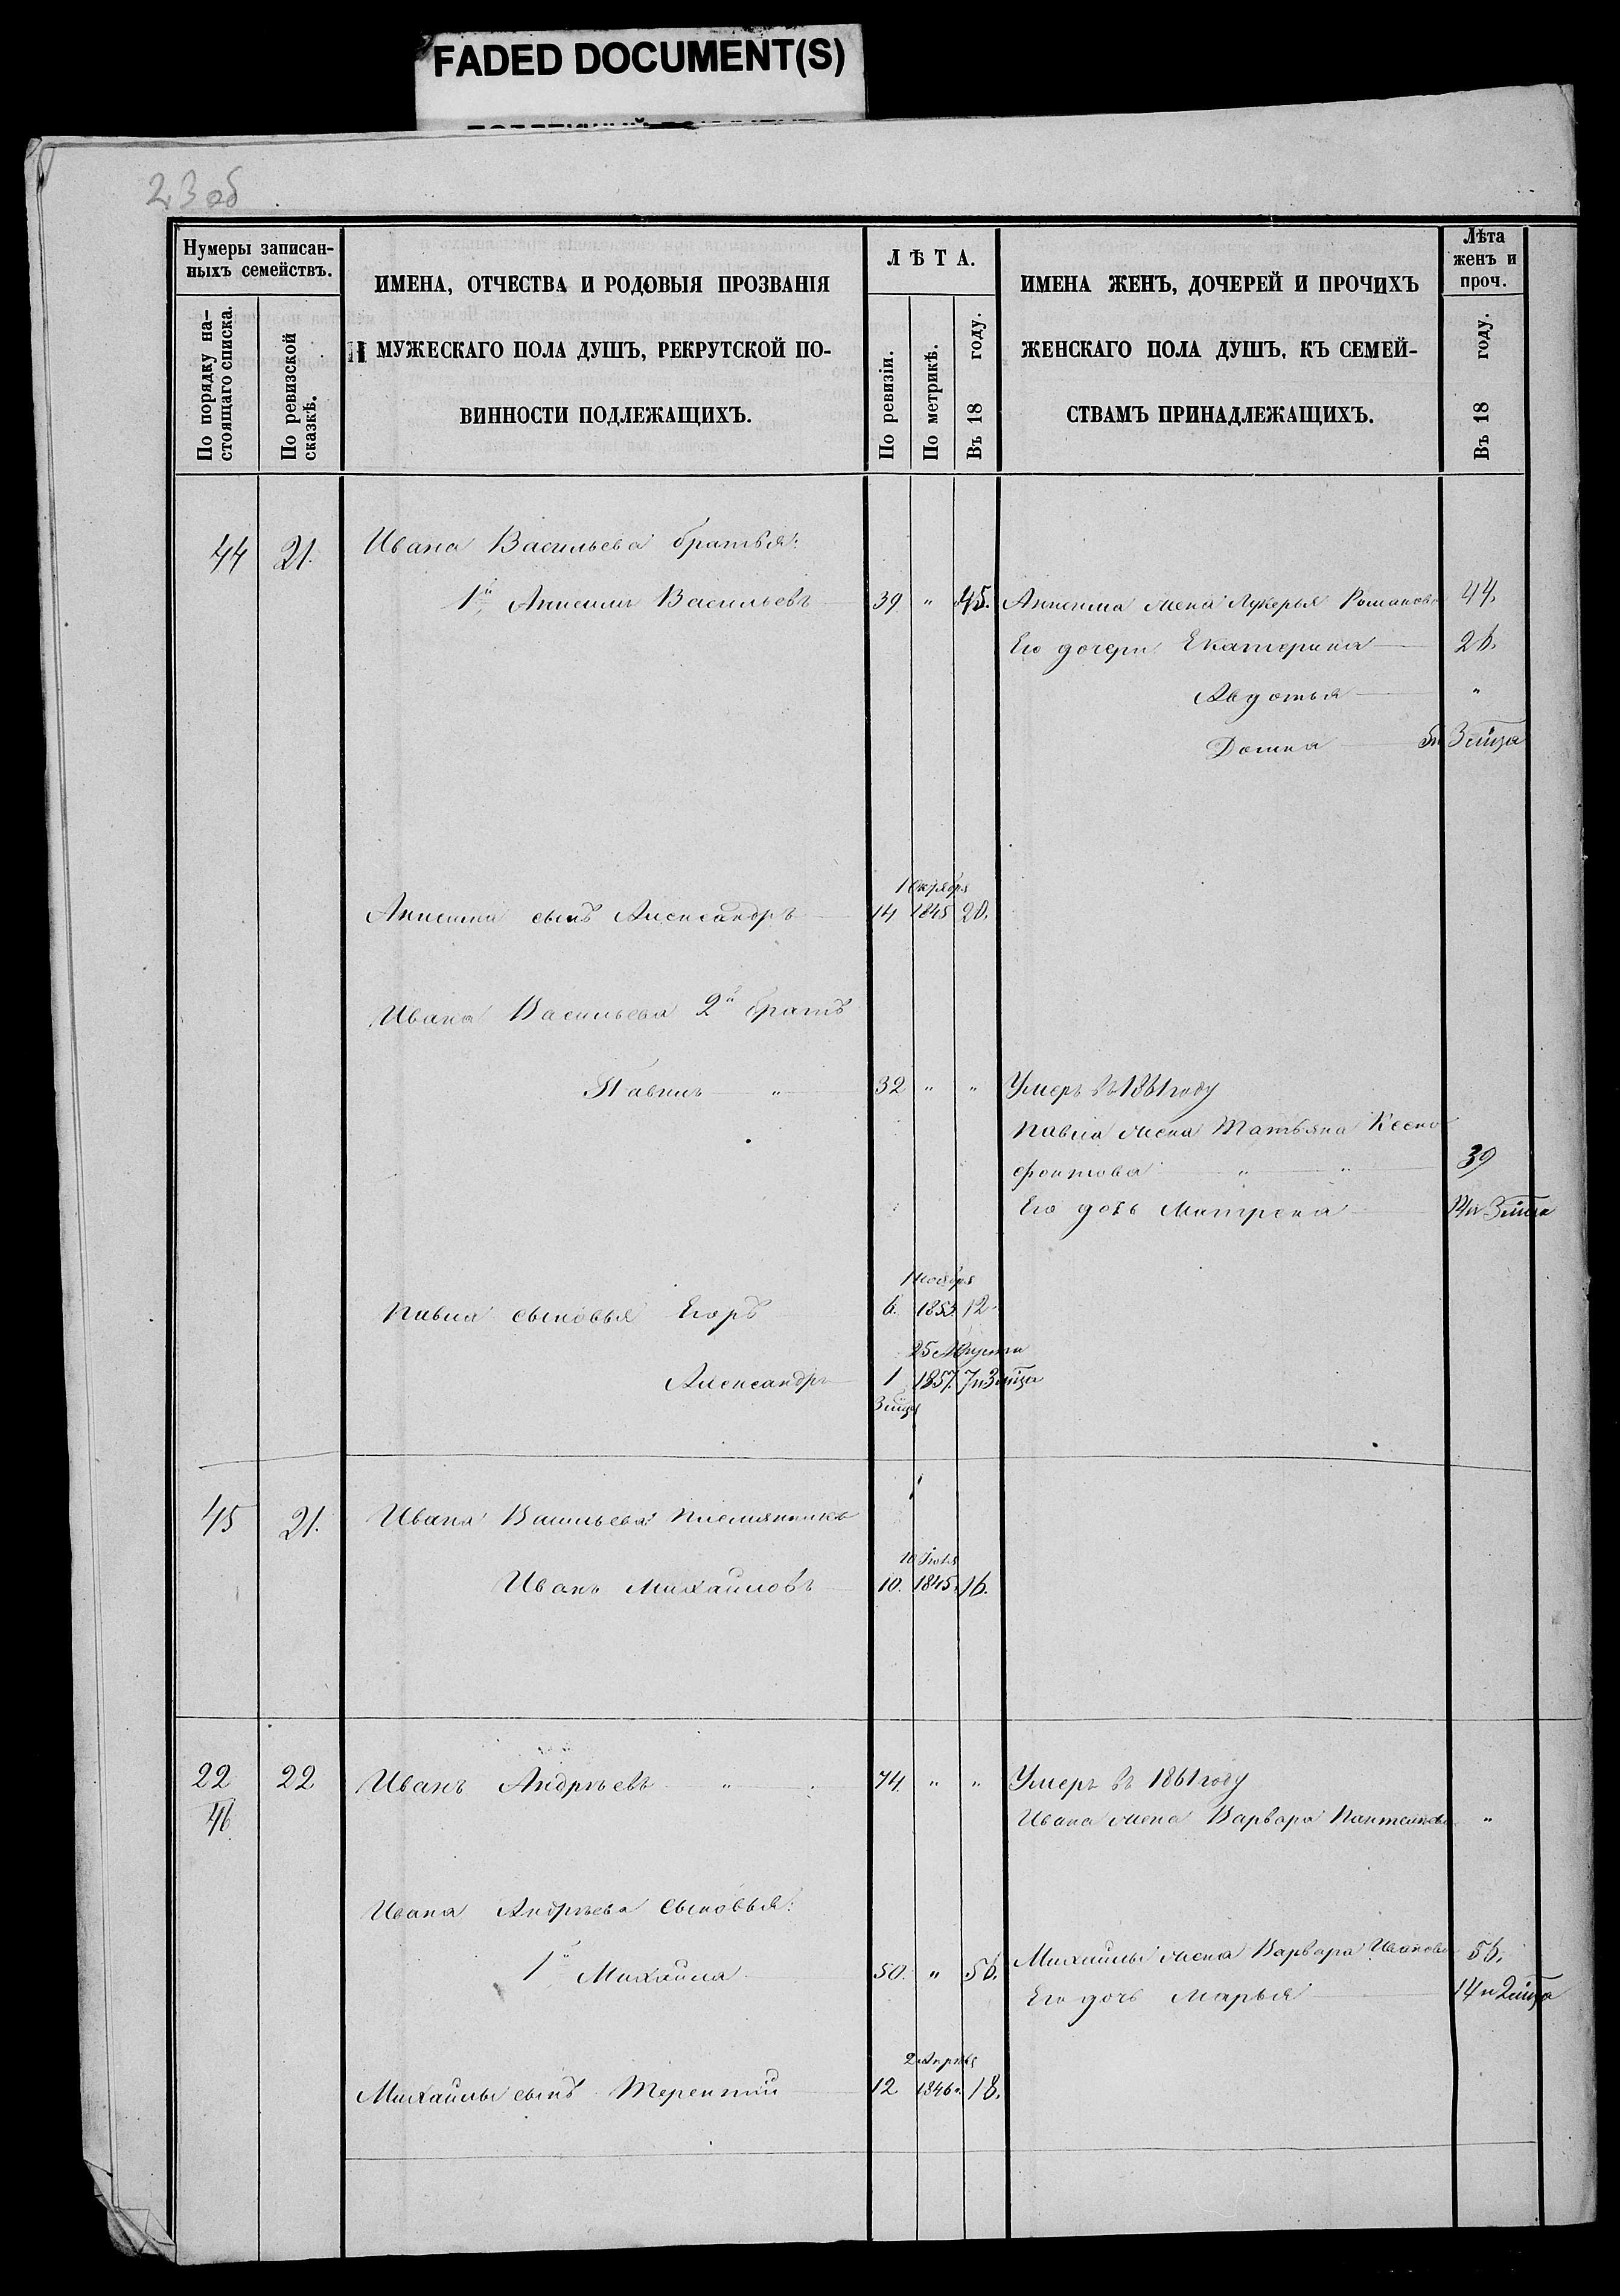 FADED DOCUMENT(S)
23 об
Нумеры записан-
ныхъ семействъ.
По порядку на-
стоящаго списка.
По ревизской
сказкѣ.
ИМЕНА, ОТЧЕСТВА И РОДОВЫЯ ПРОЗВАНІЯ
МУЖЕСКАГО ПОЛА ДУШЪ, РЕКРУТСКОЙ ПО-
ВИННОСТИ ПОДЛЕЖАЩИХЪ.
ЛѢТА.
По ревизіи.
По метрикѣ.
Въ 18 году.
ИМЕНА ЖЕНЪ, ДОЧЕРЕЙ И ПРОЧИХЪ
ЖЕНСКАГО ПОЛА ДУШЪ, КЪ СЕМЕЙ-
СТВАМЪ ПРИНАДЛЕЖАЩИХЪ.
Лѣта
женъ и
проч.
Въ 18 году.
44 21. Ивана Васильева братья:
1й Анисимъ Васильевъ 39 " 45. Анисима жена Лукерья Романова 44.
Его дочери Екатерина 26.
Авдотья "
Домна 5и 3 мѣца
1 Октября
Анисима сынъ Александръ 14 1845 20.
Ивана Васильева 2й братъ
Павелъ " 32 " " Умеръ въ 1861 году
Павла жена Татьяна Ксено
фонтова " " 39
Его дочь Матрена 14и 3мѣца
1 Ноября
Павла сыновья Егоръ 6. 1853 12.
25 Августа
Александръ 1 1857. 7и3мѣца
3 мѣца
45 21. Ивана Васильева племянникъ
10 Іюля
Иванъ Михайловъ 10. 1845. 16.
22 22 Иванъ Андреевъ " 74. " " Умеръ въ 1861 году
46 Ивана жена Варвара "
Ивана Андреева сыновья:
1й Михайла 50. " 56. Михайлы жена Варвара Иванова 56.
Его дочь Марья 14 и 2мѣца
2 Апрѣля
Михайлы сынъ Терентий 12 1846. 18.